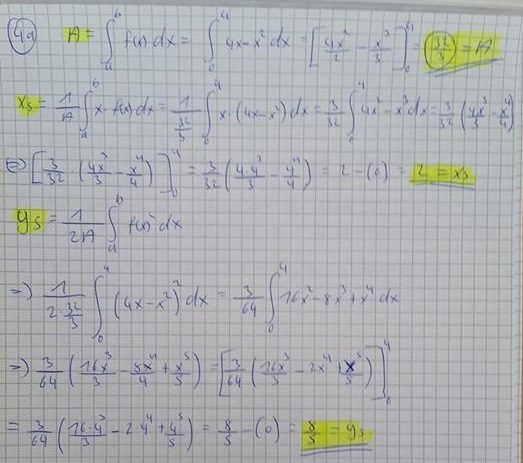 4a) A = ∫ₐᵇ f(x) dx = ∫₀⁴ 4x - x² dx = [4x²/2 - x³/3]₀⁴ = (32/3) = A
xₛ = 1/A ∫ₐᵇ x · f(x) dx = 1/(32/3) ∫₀⁴ x · (4x - x²) dx = 3/32 ∫₀⁴ 4x² - x³ dx = 3/32 (4x³/3 - x⁴/4)
=) [3/32 · (4x³/3 - x⁴/4)]₀⁴ = 3/32 (4·4³/3 - 4⁴/4) = 2 - (0) = 2 = xₛ
yₛ = 1/2A ∫ₐᵇ f(x)² dx
=) 1/(2·32/3) ∫₀⁴ (4x - x²)² dx = 3/64 ∫₀⁴ 16x² - 8x³ + x⁴ dx
=) 3/64 (16x³/3 - 8x⁴/4 + x⁵/5) = [3/64 (16x³/3 - 2x⁴ + x⁵/5)]₀⁴
= 3/64 (16·4³/3 - 2·4⁴ + 4⁵/5) = 8/5 - (0) = 8/5 = yₛ